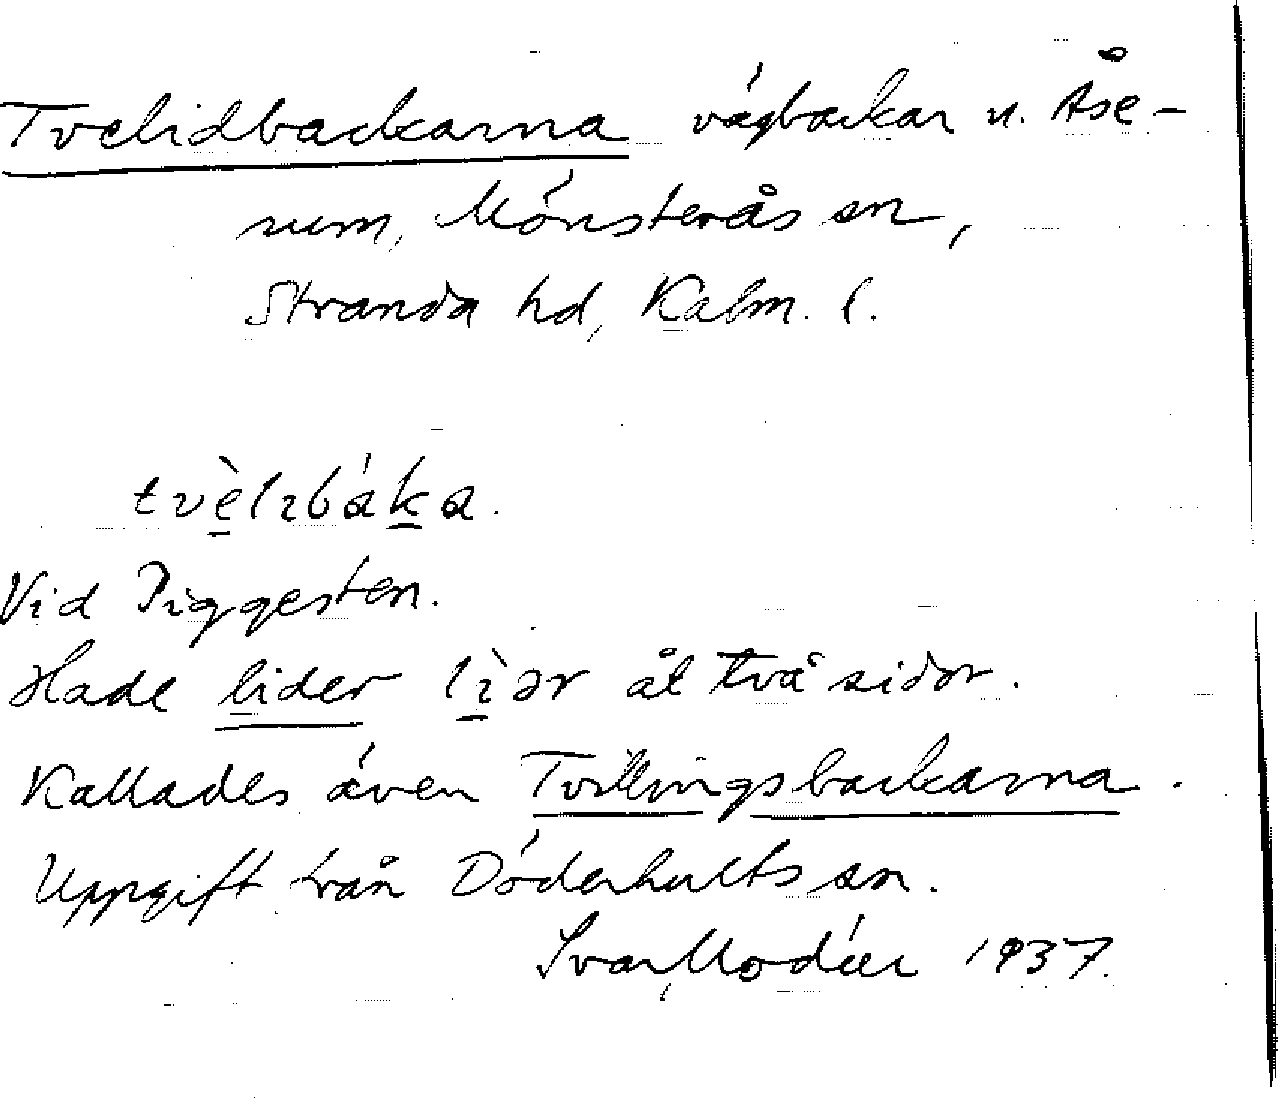 Tvelidbackarna vägbackar n. Åse-
rum, Mönsterås sn,
Stranda hd, Kalm. l.
tvèlıbáka.
Vid Piggesten.
Hade lider lı̀ər åt två sidor.
Kallades även Tvillingsbackarna.
Uppgift från Döderhults sn.
Ivar Modéer 1937.